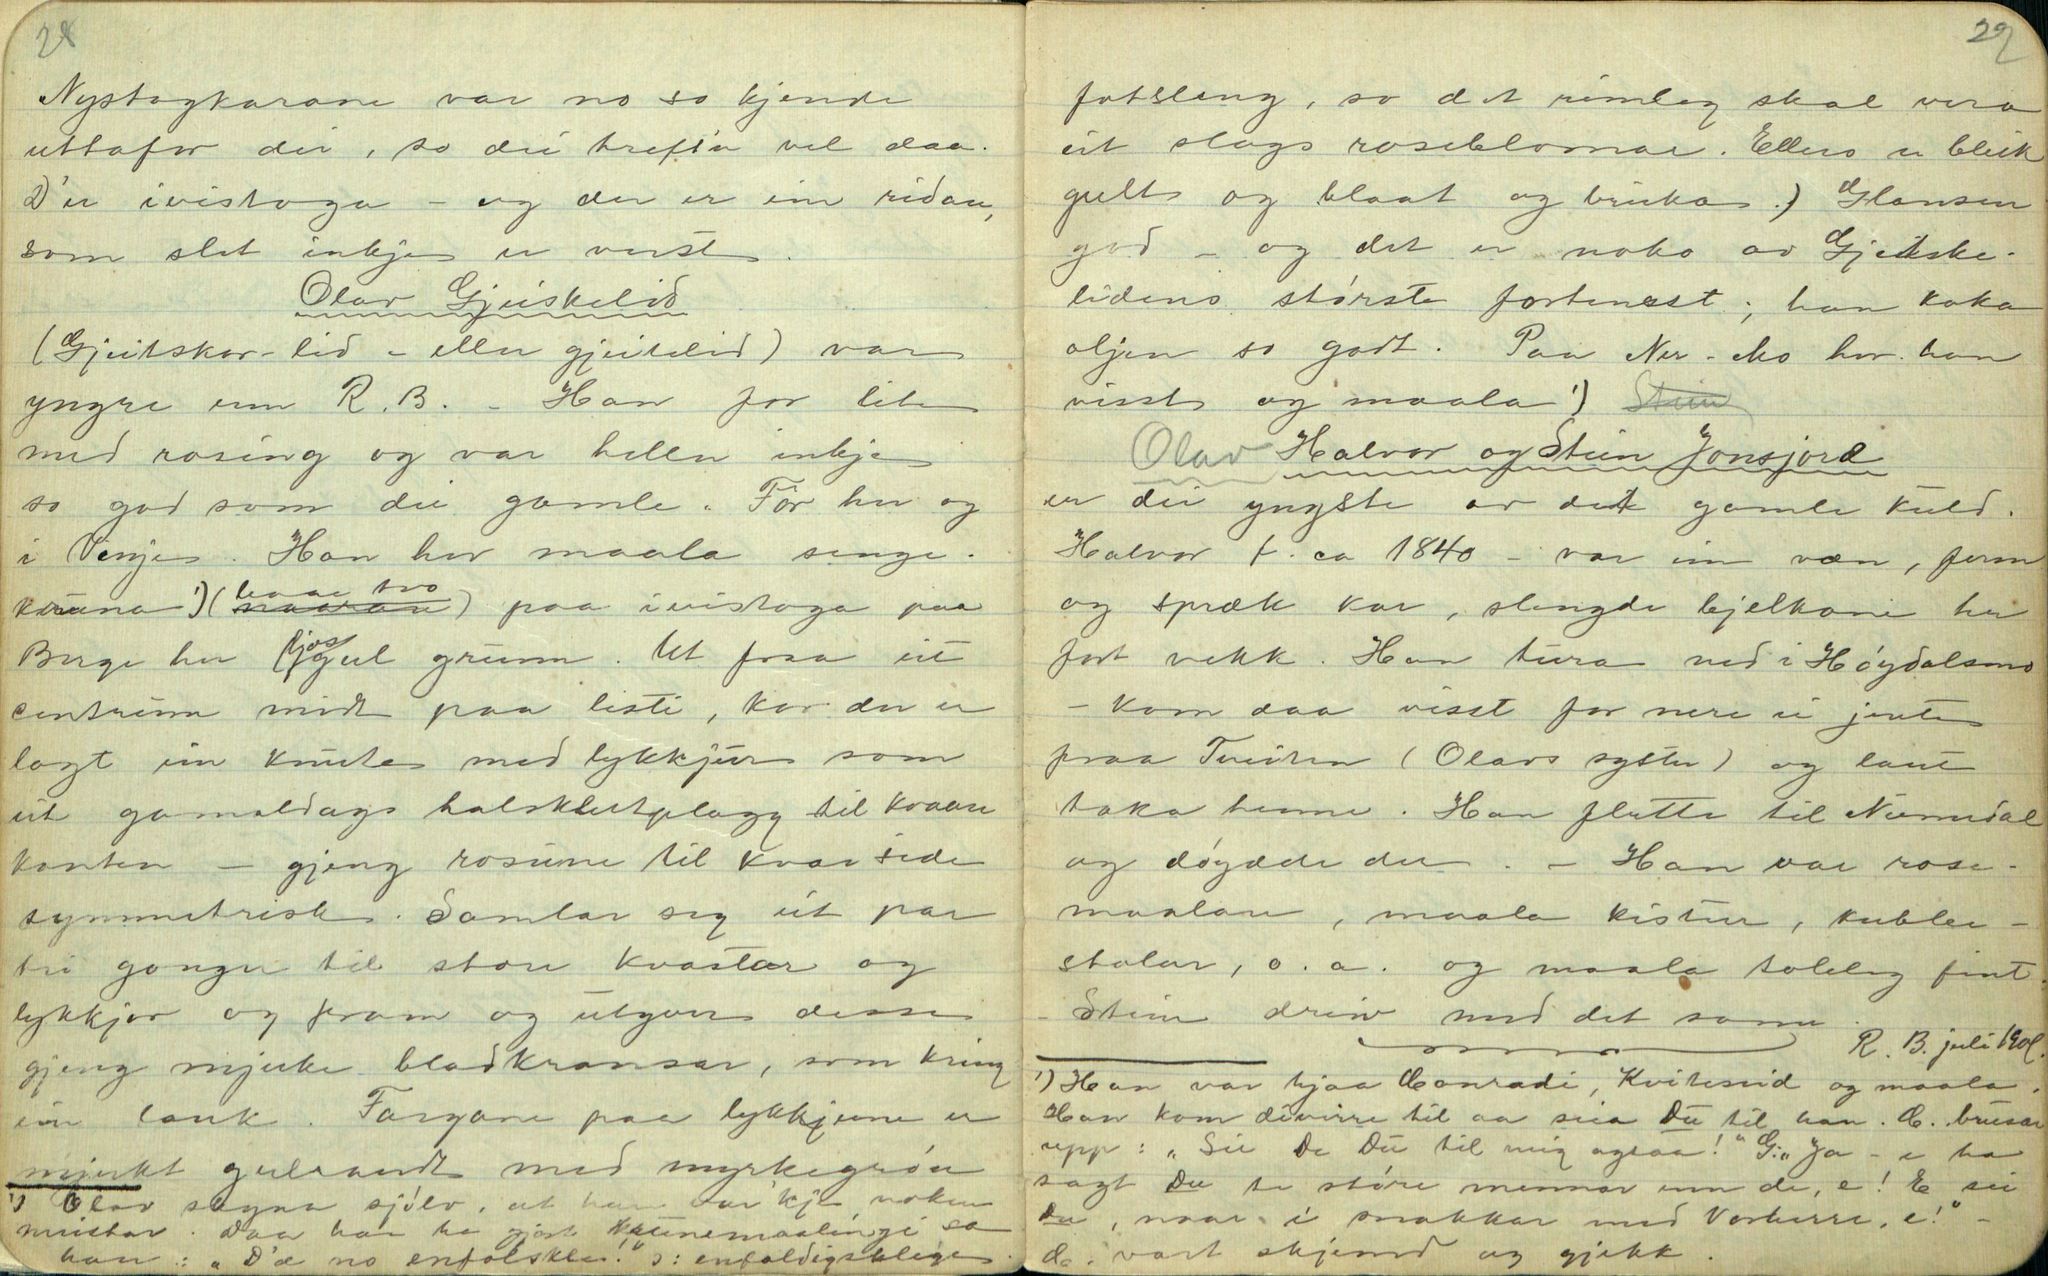 28
Nystogkarane var no so kjende
uttafor dei, so dei trefte vel daa.
D'er ivistoga - og der er ein ridau,
som slet inkje er verst.
Olav Gjeiskelid
(Gjeitskor-lid - eller gjeitelid) var
yngre enn R. B. - Han for lite
med rosing og var heller inkje
so god som dei gamle. For her og
i Vinje. Han her maala senge-
kruna ¹) (baae tvo) paa ivistoga paa
Berge her (ljosgul grunn. Ut fraa eit
centrum midt paa listi, kor der er
lagt ein knute med lykkjur som
eit gamaldags halsklutplagg til kvaare
kanten - gjeng rosune til kvar side
symmetrisk. Samlar seg eit par
tri gonger til store kvastar og
lykkjor og fram og utyver desse
gjeng mjuke bladkransar, som kring
ein lauk. Fargane paa lykkjune er
mjukt gulraudt med myrkegrøn
¹) Olav segna sjølv, at han var'kje noken
meistar. Daa han ha gjort krunemaalingi sa
han: "D'æ no enfolskle!" ɔ: enfoldigsklege.
29
fotsleng, so det rimleg skal vera
eit slags roseblomar. Ellers er bleik
gult og blaat og bruka.) Glansen
god - og det er noko av Gjeitske-
lidens største fortenest; han koka
oljen so godt. Paa Ner-Mo her han
visst og maala ¹) Stein
Olav Halvor og Stein Jonsjord
er dei yngste av det gamle kuld.
Halvor f. ca 1840 - var ein væn, ferm
og spræk kar, slengde kjelkane her
fort vekk. Han tura ned i Høydalsmo
- kom daa visst for nere ei jente
fraa Tveiten (Olavs syster) og laut
taka henne. Han flutte til Numedal
og døydde der. - Han var rose-
maalare, maala kistur, kubbe-
stolar, o. a. og maala toleleg fint.
- Stein dreiv med det same.
R. B. juli 1908.
¹) Han var hjaa Conradi, Kviteseid og maala.
Han kom divirre til aa seia Du til han. C. brusar
upp: "Sei De Du til mig ogsaa!" G: "Ja - e ha
sagt Du te større mennar enn de, e! E sei
Du, naar e snakkar med Vorherre, e!" -
C. vart skjemd og gjekk.